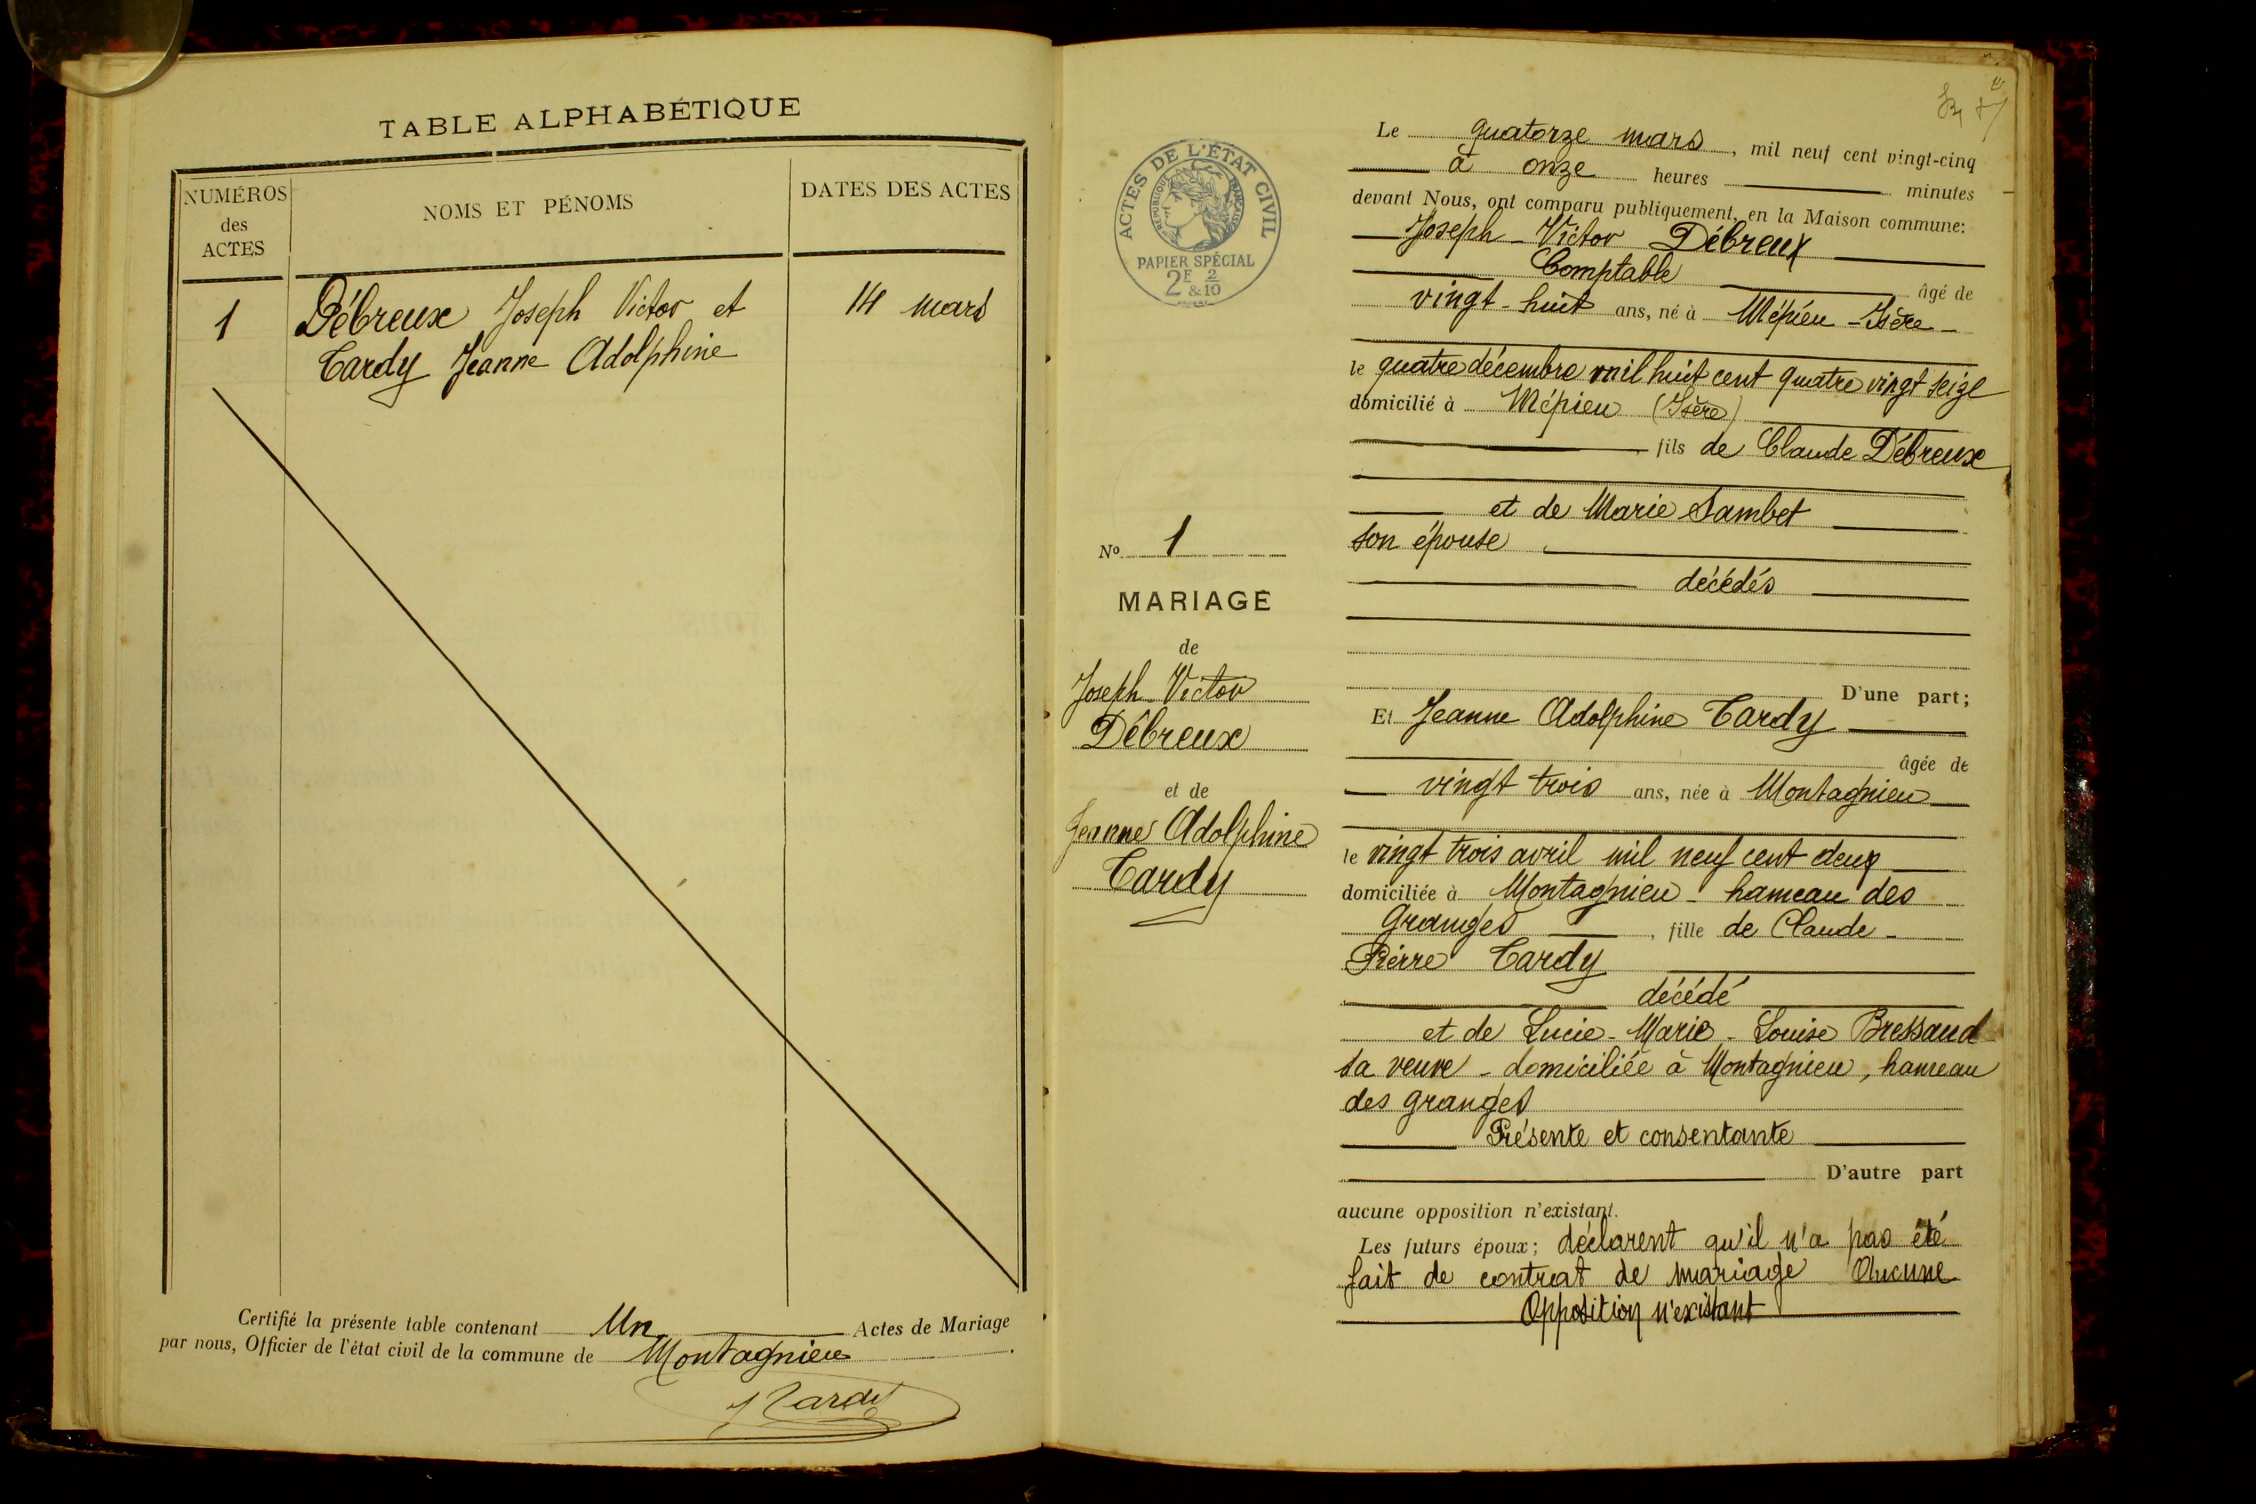 TABLE ALPHABÉTIQUE
NUMÉROS
des
ACTES
NOMS ET PÉNOMS
DATES DES ACTES
1
Débreux Joseph Victor et
14 mars
Tardy Jeanne Adolphine
Certifié la présente table contenant Un Actes de Mariage
par nous, Officier de l'état civil de la commune de Montagnieu.
ACTES DE L'ÉTAT CIVIL
RÉPUBLIQUE FRANÇAISE
PAPIER SPÉCIAL
2F & 2/10
No 1
MARIAGE
de
Joseph Victor
Débreux
et de
Jeanne Adolphine
Tardy
Le quatorze mars, mil neuf cent vingt-cinq
à onze heures minutes
devant Nous, ont comparu publiquement, en la Maison commune:
Joseph - Victor Débreux
Comptable âgé de
vingt-huit ans, né à Mépieu - Isère -
le quatre décembre mil huit cent quatre vingt seize
domicilié à Mépieu (Isère)
fils de Claude Débreux
et de Marie Sambet
son épouse
décédés
D'une part;
Et Jeanne Adolphine Tardy
âgée de
vingt trois ans, née à Montagnieu
le vingt trois avril mil neuf cent deux
domiciliée à Montagnieu - hameau des
granges, fille de Claude -
Pierre Tardy
décédé
et de Lucie - Marie - Louise Bressaud
sa veuve - domiciliée à Montagnieu, hameau
des granges
Présente et consentante
D'autre part
aucune opposition n'existant.
Les futurs époux; déclarent qu'il n'a pas été
fait de contrat de mariage Aucune
Opposition n'existant